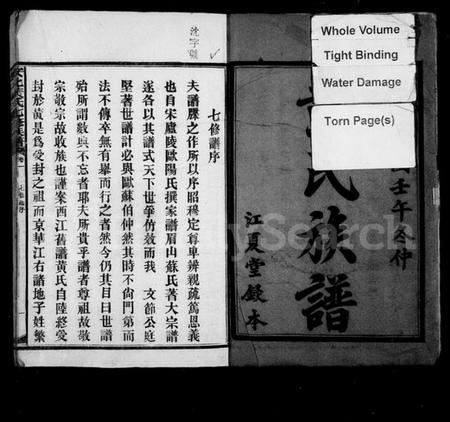 Whole Volume
Tight Binding
Water Damage
Torn Page(s)
壬午冬仲
氏族譜
江夏堂鐫本
七修譜序
夫譜牒之作所以序昭穆定尊卑辨親疏篤恩義
也自宋廬陵歐陽氏撰家譜眉山蘇氏著大宗譜
遂各以其譜式天下世爭仿效而我 文節公庭
堅著世譜計必與歐蘇伯仲然其時不尙門第而
法不傳卒無有舉而行之者然今仍其目曰世譜
殆所謂數典不忘者耶夫所貴乎譜者尊祖故敬
宗敬宗故收族也謹案西江舊譜黃氏自陸終受
封於黃是為受封之祖而京華江右譜地子姓繁